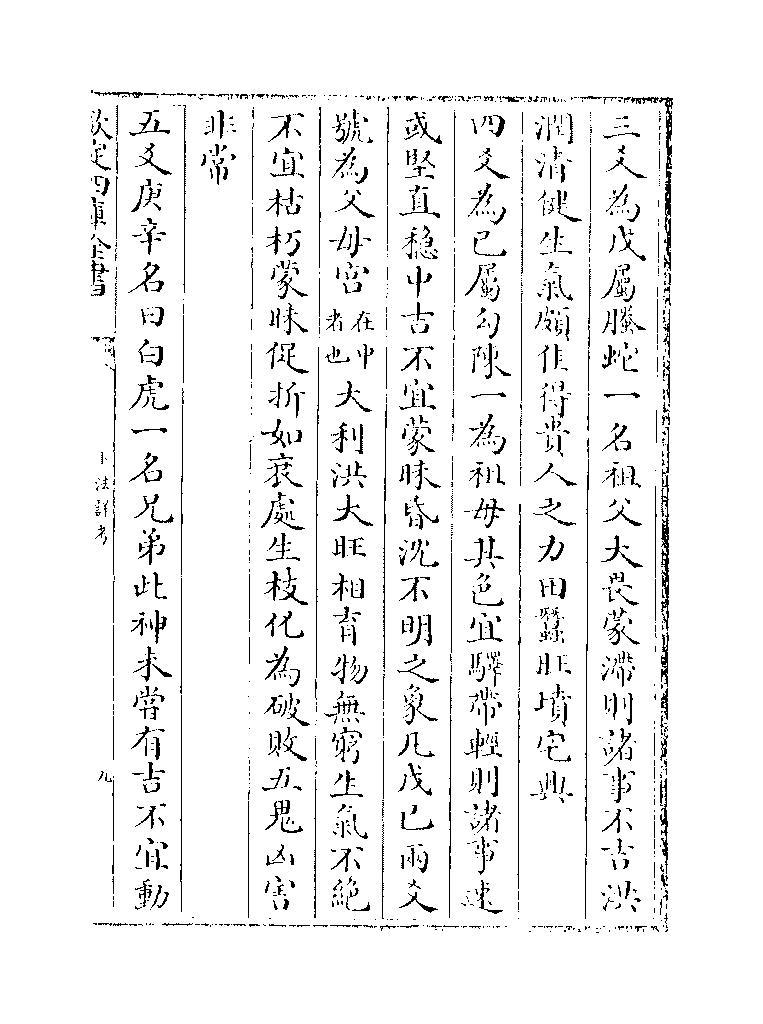 三爻為戊屬螣蛇一名祖父大畏蒙滯則諸事不吉洪
潤清健生氣頗佳得貴人之力田蠶旺墳宅興
四爻為已屬勾陳一為祖母其色宜驛帶輕則諸事速
或堅直穩中吉不宜蒙昧昏沈不明之象凡戊已兩爻
號為父母宫在中者也大利洪大旺相育物無窮生氣不絶
不宜枯朽蒙昧促折如衰處生枝化為破敗五鬼凶害
非常
五爻庚辛名曰白虎一名兄弟此神未嘗有吉不宜動
欽定四庫全書
卜法詳考
九